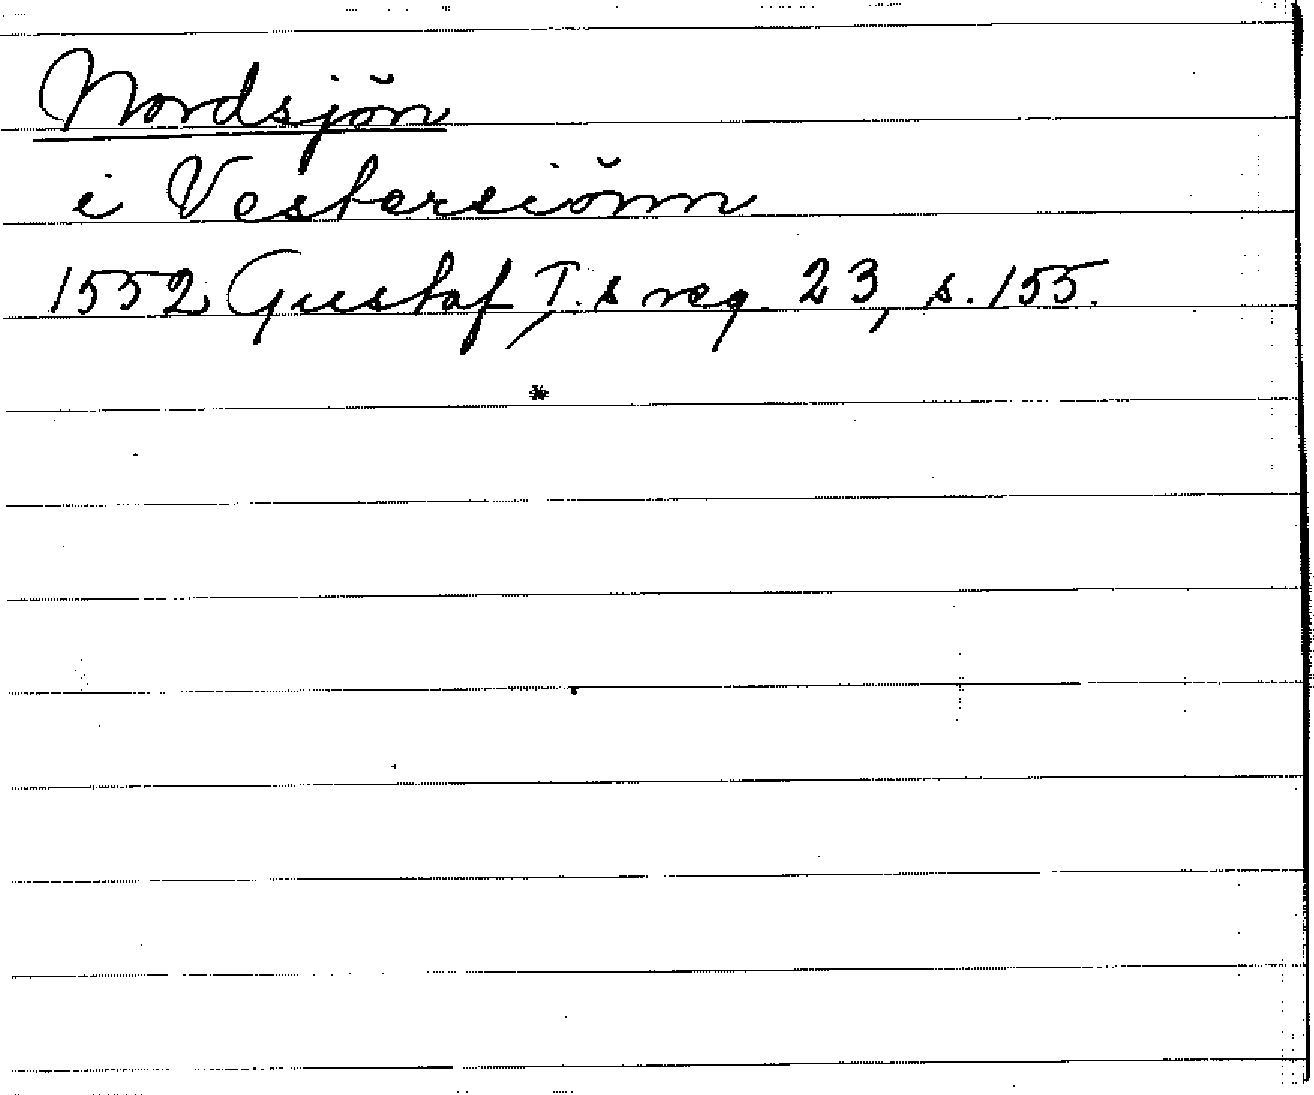 Nordsjön
i Vestersiönn
1552 Gustaf I:s reg. 23, s. 155.
*